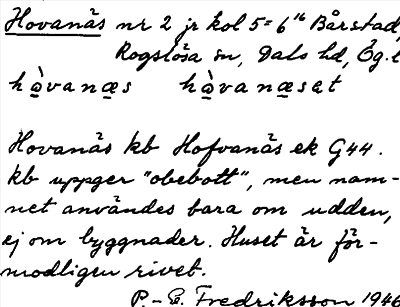 Hovanäs nr 2 jr kol 5=6¹⁶ Bårstad,
Rogslösa sn, Dals hd, Ög. l
ho̲vanæs ho̲vanæset
Hovanäs kb Hofvanäs ek G44.
kb uppger "obebott", men nam-
net användes bara om udden,
ej om byggnader. Huset är för-
modligen rivet.
P.-E. Fredriksson 1946